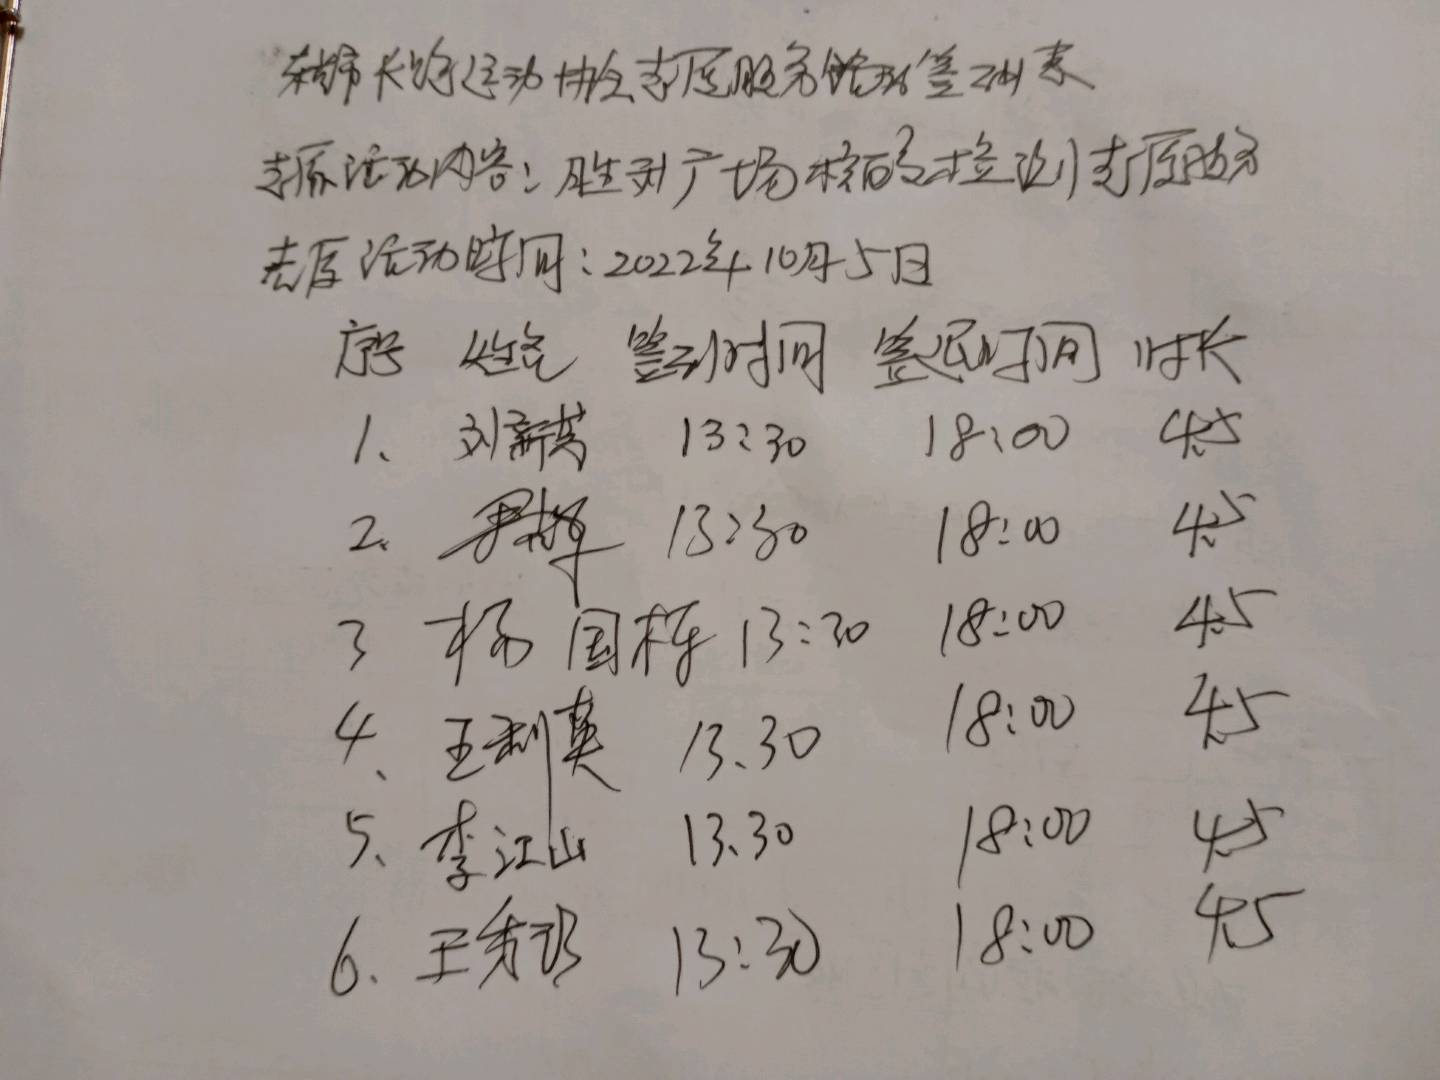 长跑运动协会志愿服务活动签到表
志愿活动内容：胜利广场核酸检测志愿服务
志愿活动时间：2022年10月5日
序号 姓名 签到时间 签退时间 时长
1、 刘新英 13:30 18:00 4.5
2、 13:30 18:00 4.5
3 杨国栋 13:30 18:00 4.5
4、 王利英 13.30 18:00 4.5
5、 李江山 13.30 18:00 4.5
6、 王秀 13:30 18:00 4.5